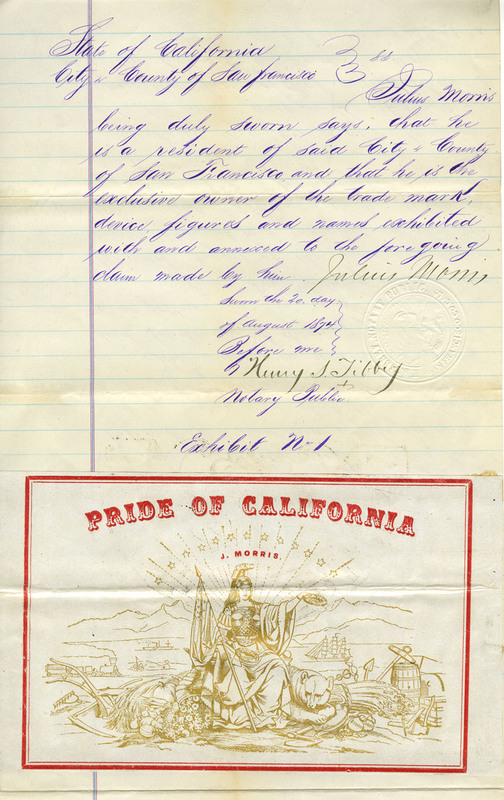 State of California
City & County of San Francisco } ss
Julius Morris
being duly sworn says; that he
is a resident of said City & County
of San Francisco, and that he is the
exclusive owner of the trade mark,
device, figures and names exhibited
with and annexed to the foregoing
claim made by him Julius Morris
Sworn the 20. day
of August 1874
Before me
Henry S. Tibbey
Notary Public
Exhibit No 1
PRIDE OF CALIFORNIA
J. MORRIS.